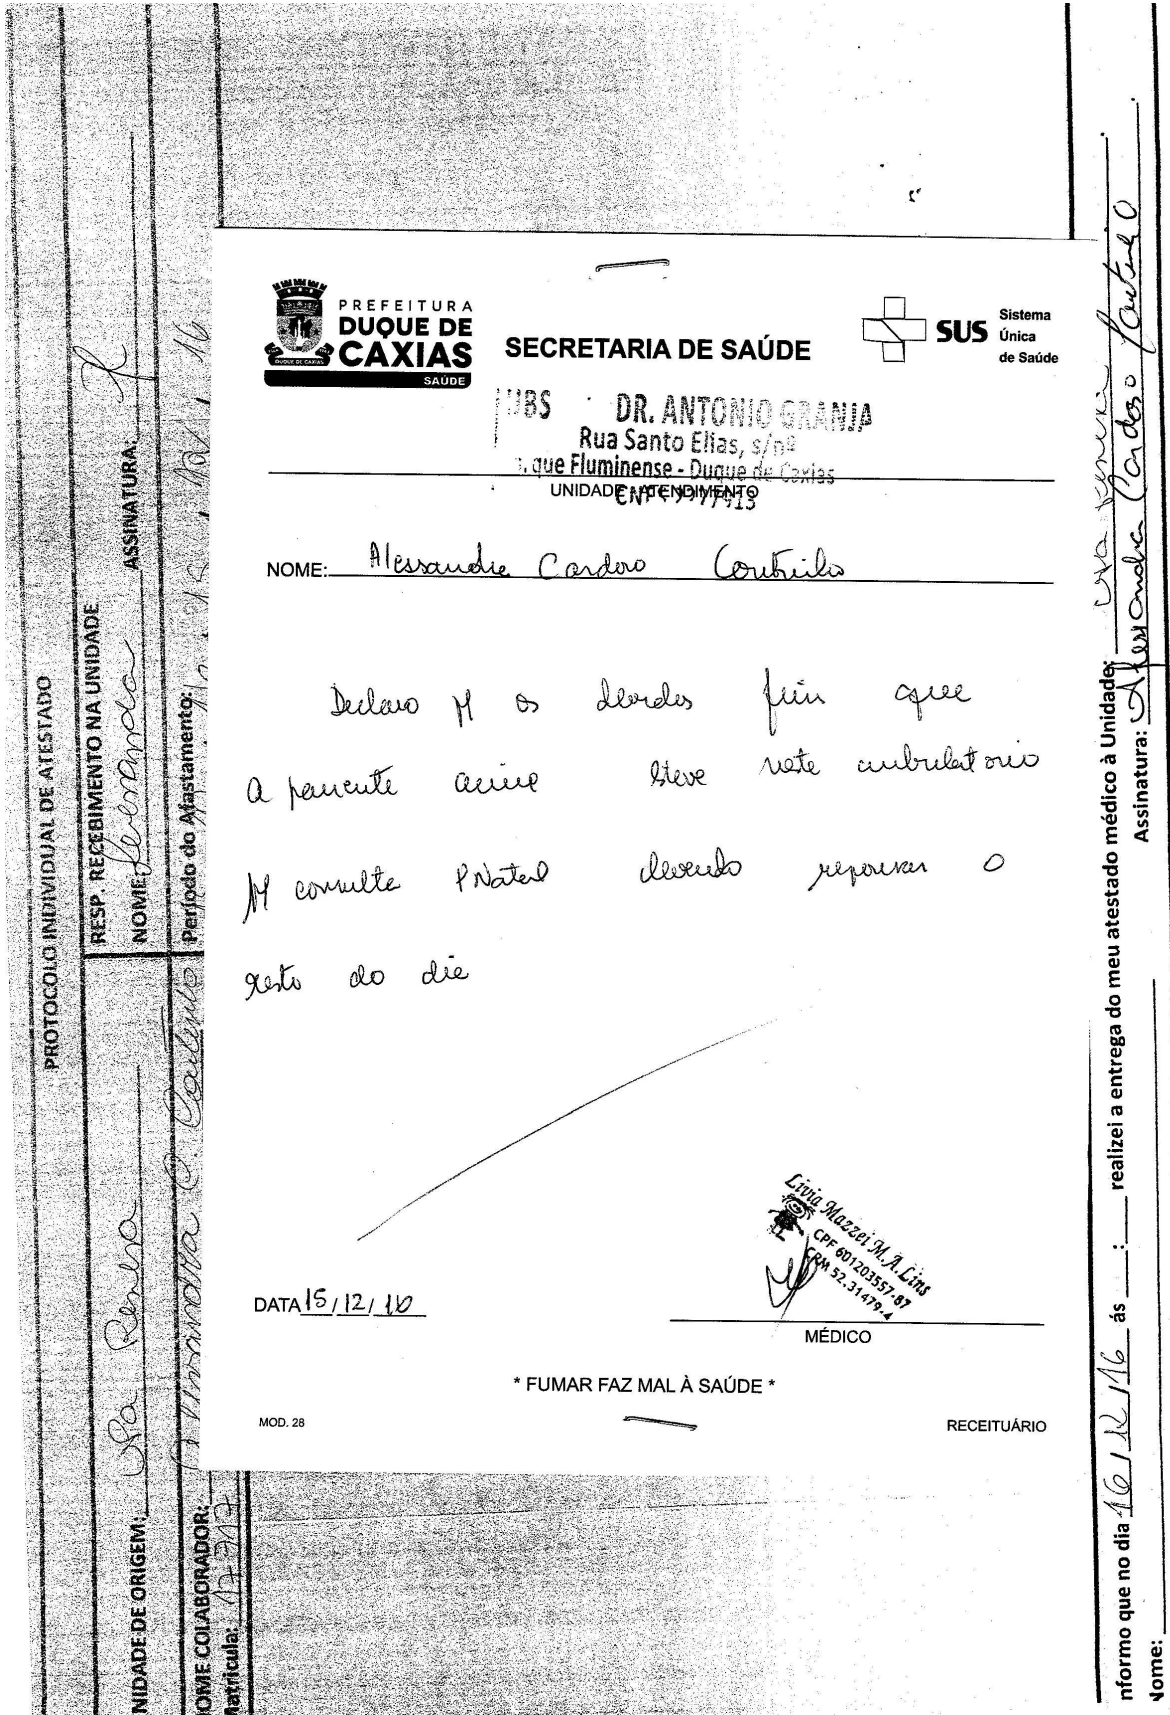 PREFEITURA
DUQUE DE
CAXIAS
DUQUE DE CAXIAS
SAÚDE
SECRETARIA DE SAÚDE
SUS
Sistema
Única
de Saúde
UBS DR. ANTONIO GRANJA
Rua Santo Elias, s/nº
que Fluminense - Duque de Caxias
UNIDADE ATENDIMENTO
NOME: Alessandra Cardoso Coutinho
Declaro p/ os devidos fins que
a paciente acima esteve neste ambulatorio
p/ consulta P Natal devendo repousar o
resto do dia
Livia Mazzei M. A. Lins
CPF 601203557-87
CRM 52.31479-4
DATA 15/12/16
MÉDICO
* FUMAR FAZ MAL À SAÚDE *
MOD. 28
RECEITUÁRIO
PROTOCOLO INDIVIDUAL DE ATESTADO
RESP. RECEBIMENTO NA UNIDADE
NIDADE DE ORIGEM: UPA
NOME: Fernanda ASSINATURA:
OME COLABORADOR:
Período do Afastamento:
Matricula: 17717
nformo que no dia 16/12/16 ás : realizei a entrega do meu atestado médico à Unidade:
Nome: Assinatura: Alessandra Cardoso Coutinho